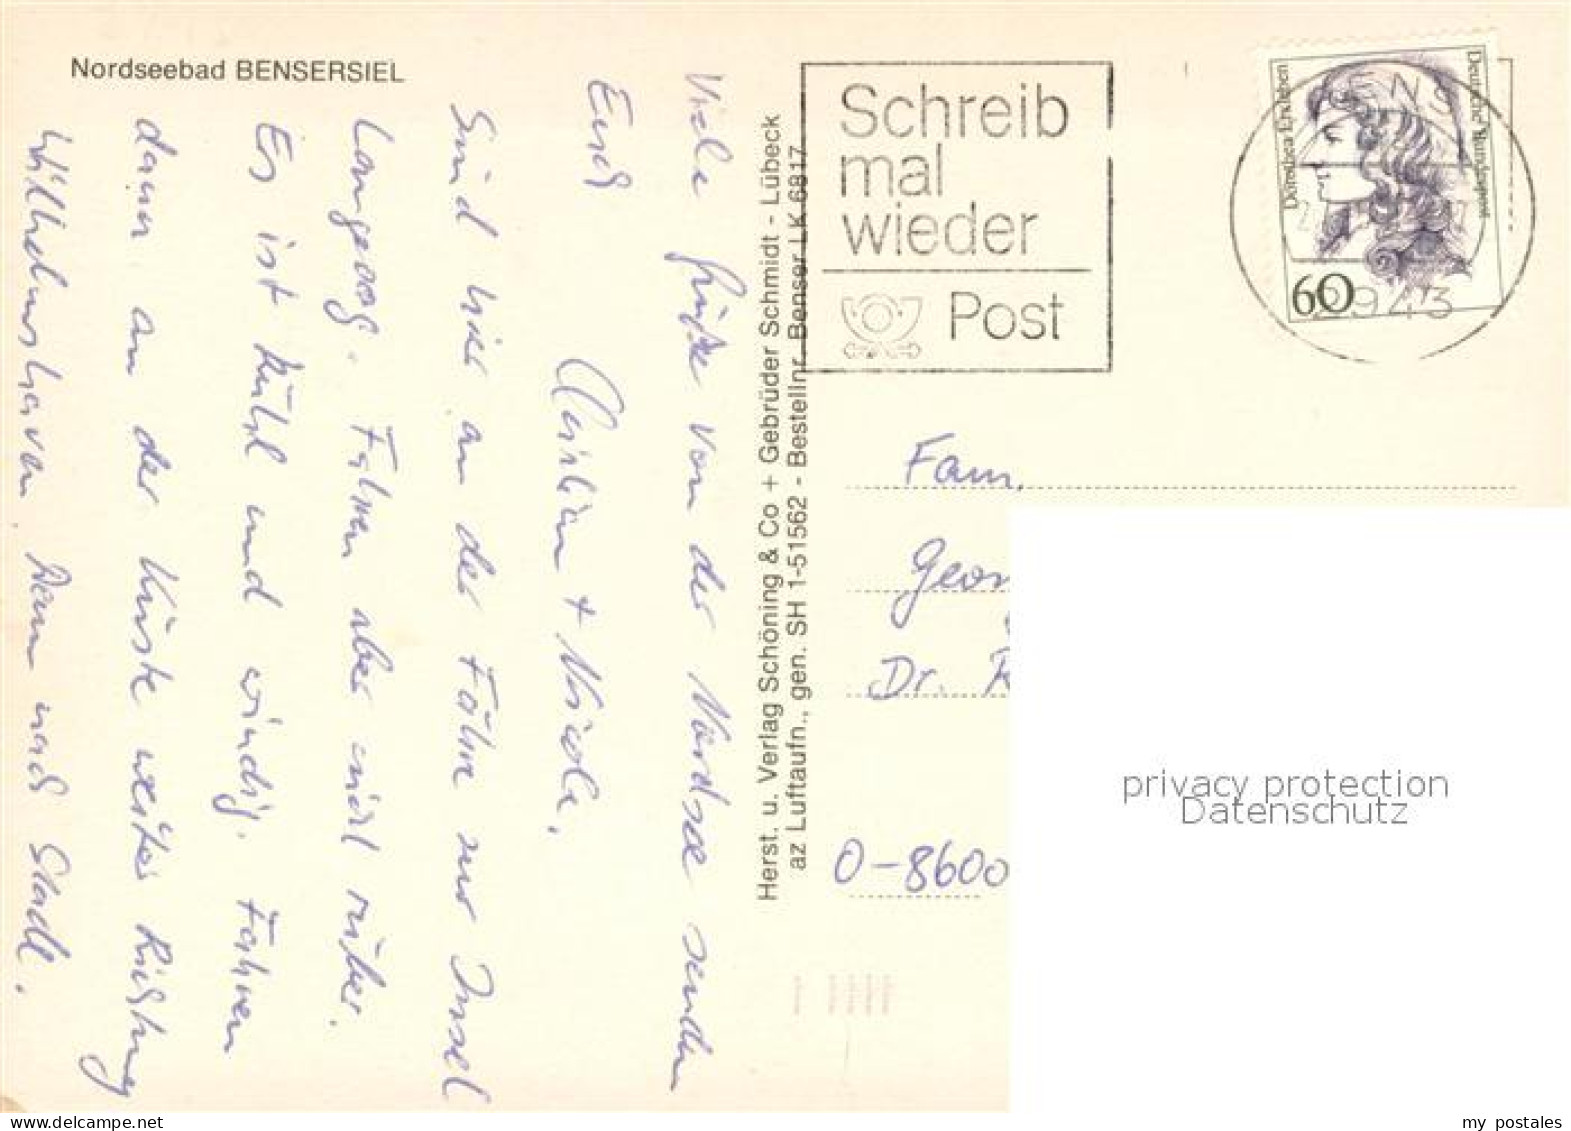 Nordseebad BENSERSIEL
Viele Grüße von der Nordsee senden
Euch
Christian + Nicola.
Sind hier an der Fähre zur Insel
Langeoog. Fahren aber nicht rüber.
Es ist kühl und windig. Fahren
dann an der Küste weiter Richtung
Wilhelmshaven. Dann nach Stade.
Herst. u. Verlag Schöning & Co + Gebrüder Schmidt - Lübeck
az Luftaufn., gen. SH 1-51562 - Bestellnr. Benser LK 6817
Schreib
mal
wieder
Post
Dorothea Erxleben
Deutsche Bundespost
60
2943
Fam.
Geor
Dr.
O-8600
privacy protection
Datenschutz
my postales